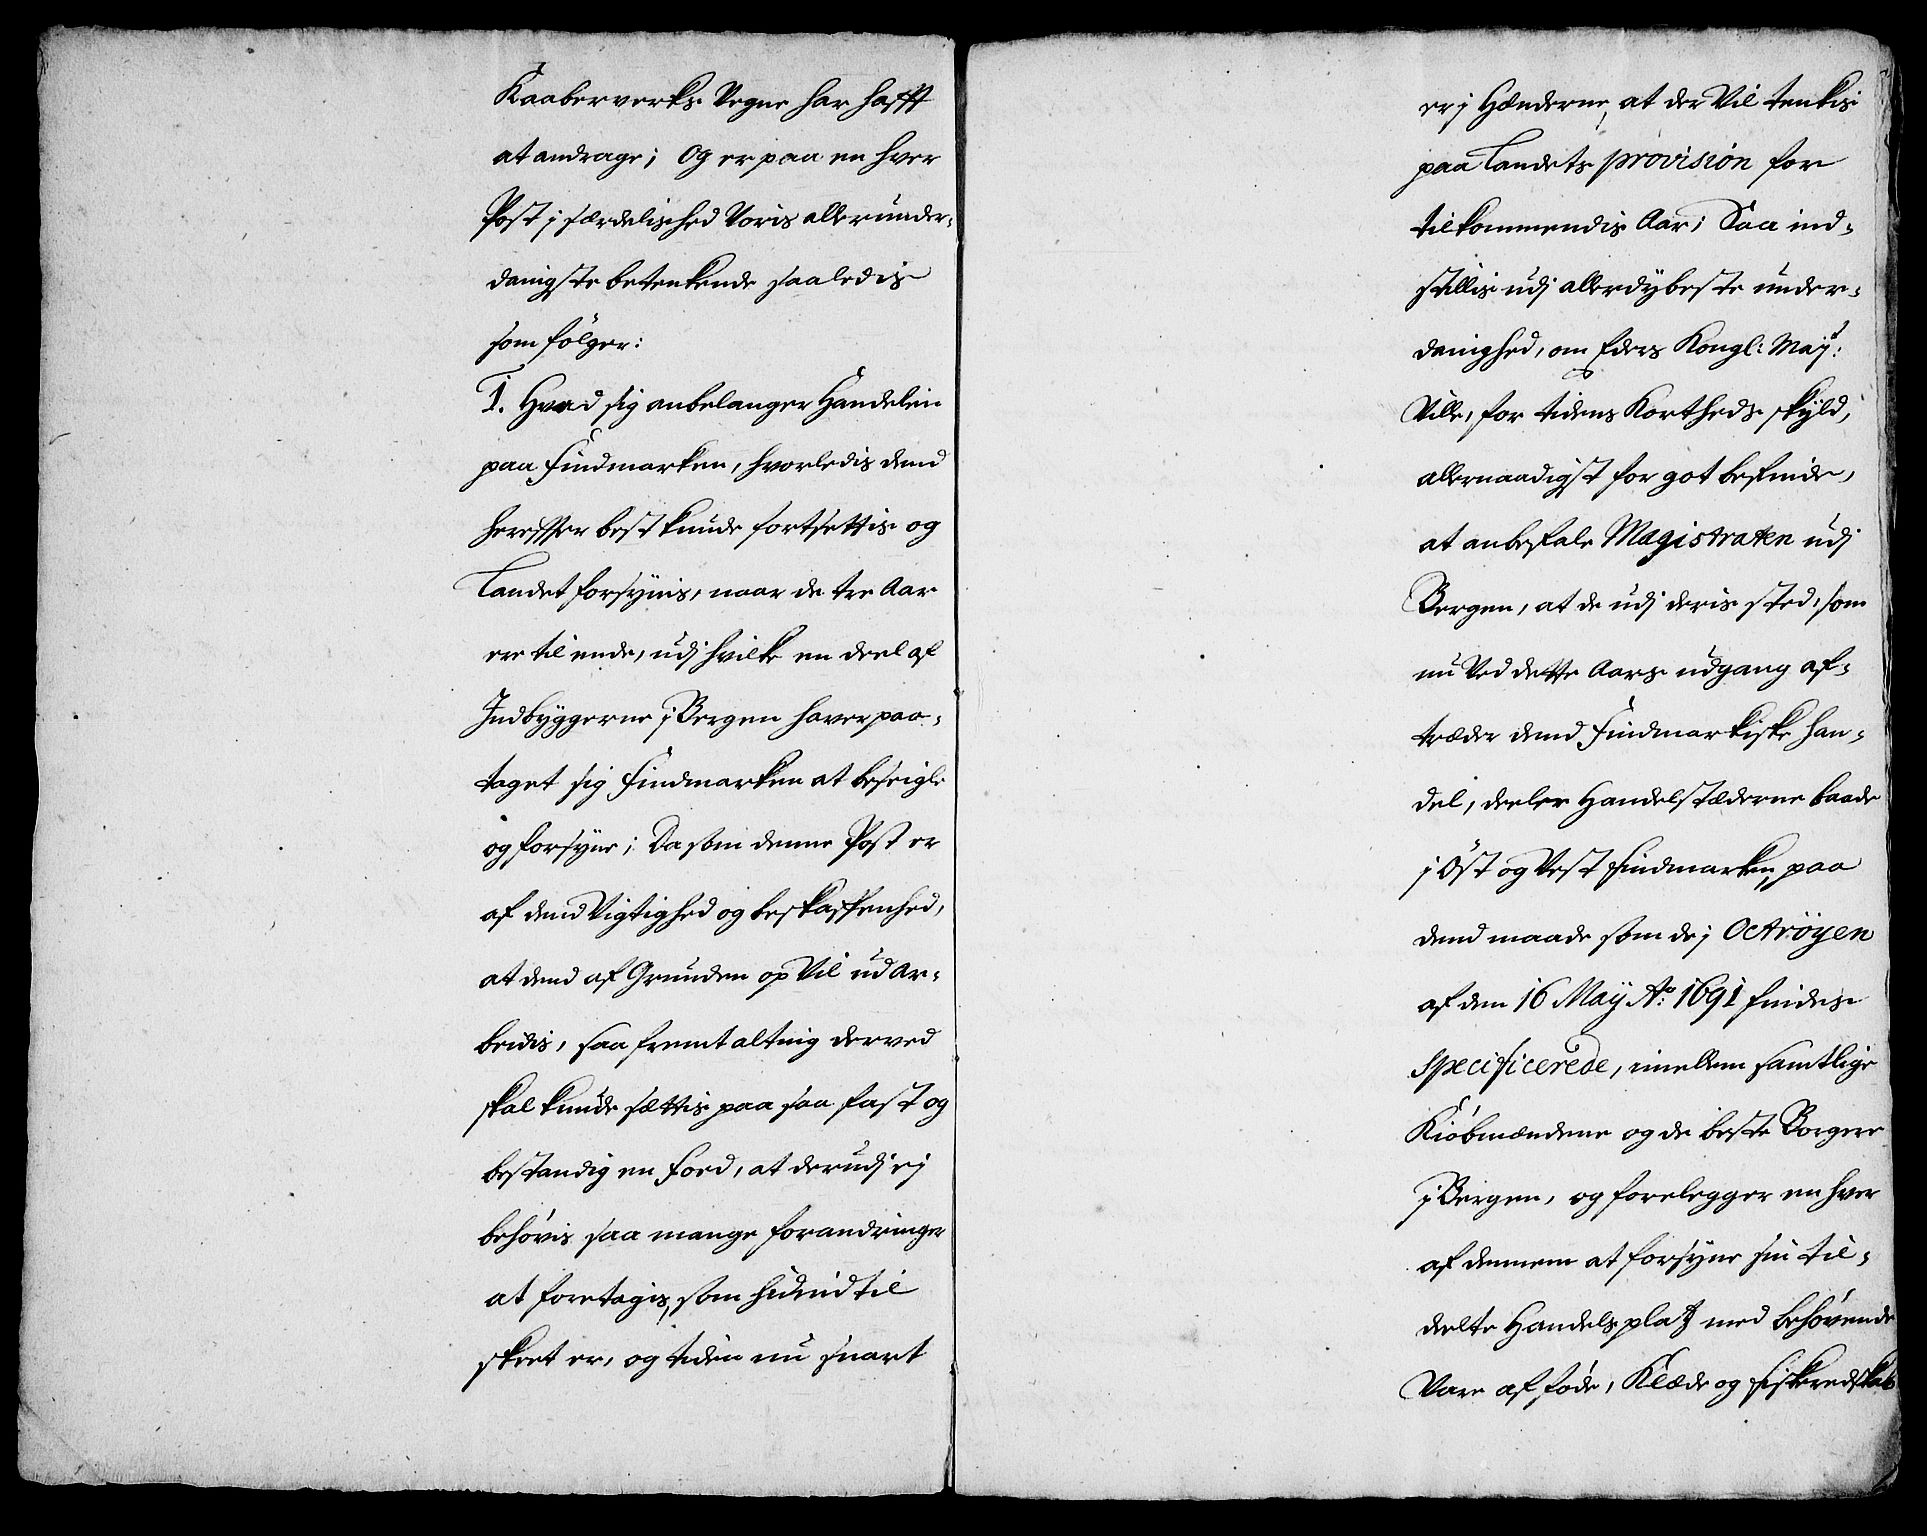 Kaaberverks Vegne har hafft
at andrage; Og er paa en hver
Post j særdelished Voris allerunder-
danigste betenkende saaledis
som fölger:
1. Hvad sig anbelanger Handelen
paa Findmarken, hvorledis dend
hereffter best kunde fortsettis og
Landet forsÿnis, naar de tre Aar
ere til ende, udj hvilke en deel af
Indbÿggerne j Bergen haver paa-
taget sig Findmarken at beseigle
og forsÿne; Da som denne Post er
af dend Vigtighed og beskaffenhed,
at dend af Grunden op Vil udar-
beidis, saafremt alting derved
skal kunde sættis paa saa fast og
bestandig en Foed, at derudj ej
behövis saa mange forandringer
at foretagis, som hidindtil
skeet er, og tiden nu snart
er j Hænderne, at der Vil tenkis
paa Landets provision for
tilkommendis Aar; Saa ind-
stillis udj allerdÿbeste under-
danighed, om Eders Kongl: Maÿt:
Ville, for tidens Kortheds skÿld,
allernaadigst for got befinde,
at anbefale Magistraten udj
Bergen, at de udj deris sted, som
nu Ved dette Aars udgang af-
træder dend Findmarkiske han-
del, deeler Handelstæderne baade
j Öst og Vest Findmarken, paa
dend maade som de j Octröyen
af den 16 Maÿ Ao: 1691 findes
specificerede, imellem samtlige
Kiöbmændene og de beste Borgere
j Bergen, og forelegger en hver
af dennem at forsÿne sin til-
deelte Handelsplatz med behövende
Vare af föde, Klæde og fiskeredskab